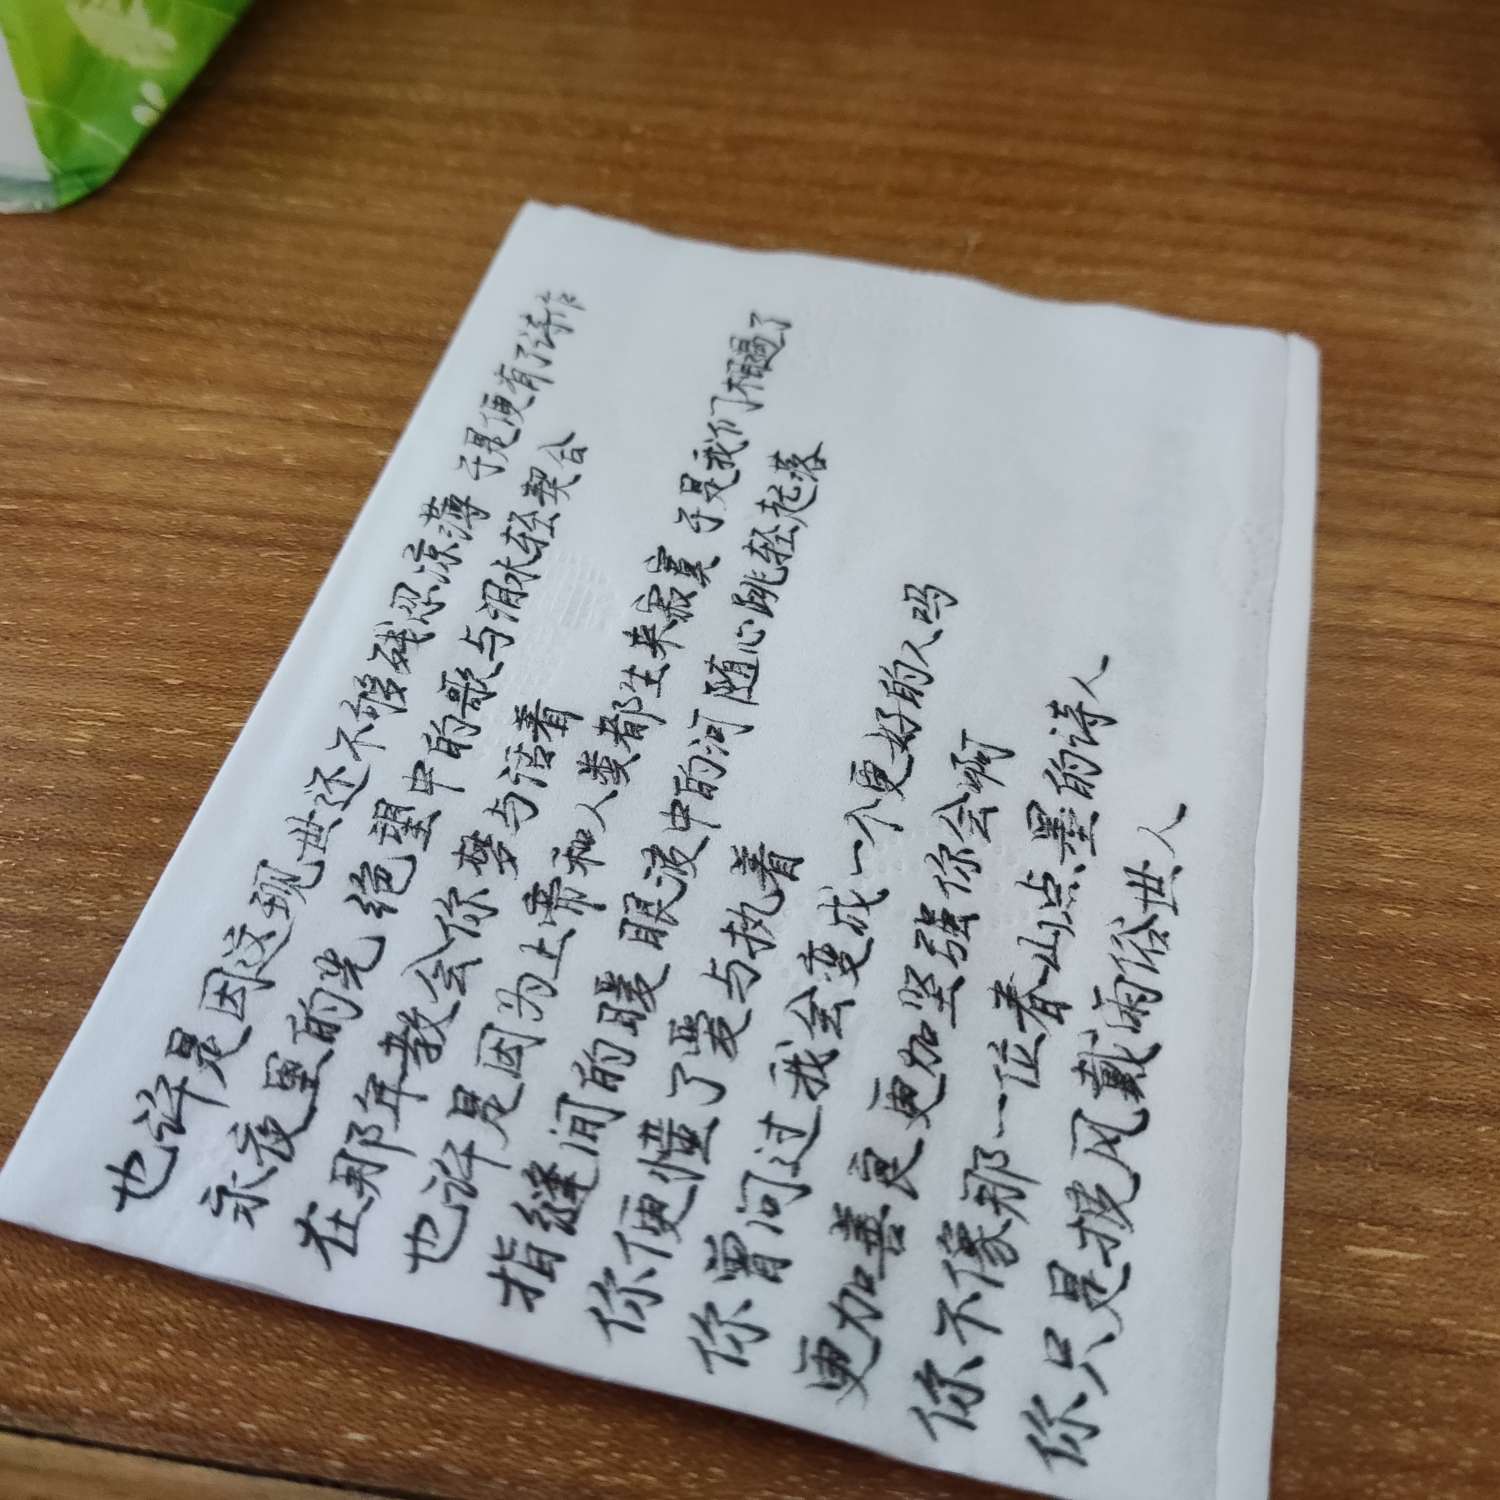 也许是因这现世还不够残忍凉薄 于是便有了诗作
永夜里的光 绝望中的歌与泪水轻契合
在那年教会你梦与活着
也许是因为上帝和人类都生来寂寞 于是我们相遇了
指缝间的暖 眼波中的河 随心跳轻起落
你便懂了爱与执着
你曾问过我会变成一个更好的人吗
更加善良更加坚强你会啊
你不像那一位春山点墨的诗人
你只是披风戴雨俗世人